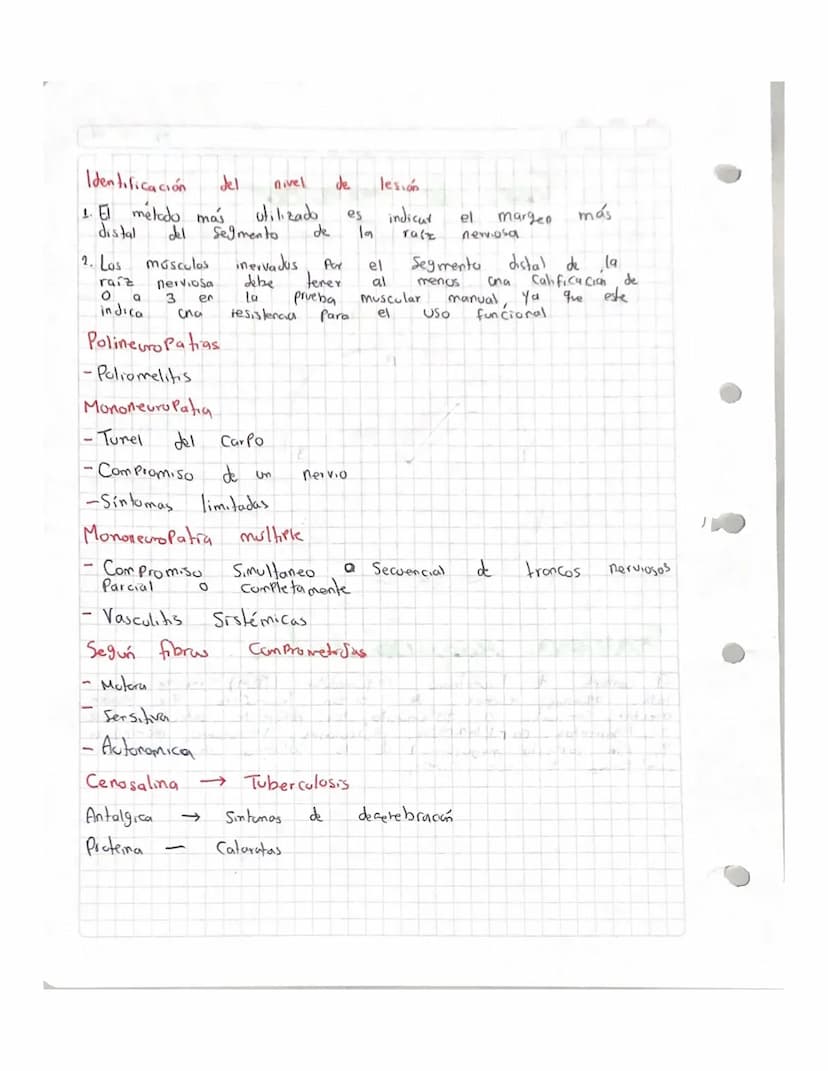 Identificación del nivel de lesión
1. El método más utilizado es indicar el margen más
distal del segmento de la raíz nerviosa
2. Los músculos inervados por el segmento distal de la
raíz nerviosa debe tener al menos una calificación de
0 a 3 en la prueba muscular manual, ya que este
indica una resistencia para el uso funcional
Polineuropatias
- Poliomelitis
Mononeuropatia
- Tunel del carpo
- Compromiso de un nervio
- Síntomas limitadas
Mononeuropatía multiple
- Compromiso Simultaneo o Secuencial de troncos nerviosos
Parcial o completamente
- Vasculitis Sistémicas
Según fibras Comprometidas
- Motora
- Sensitiva
- Autonomica
Cenosalina → Tuberculosis
Antalgica → Sintomas de decerebración
Proteina — Cataratas